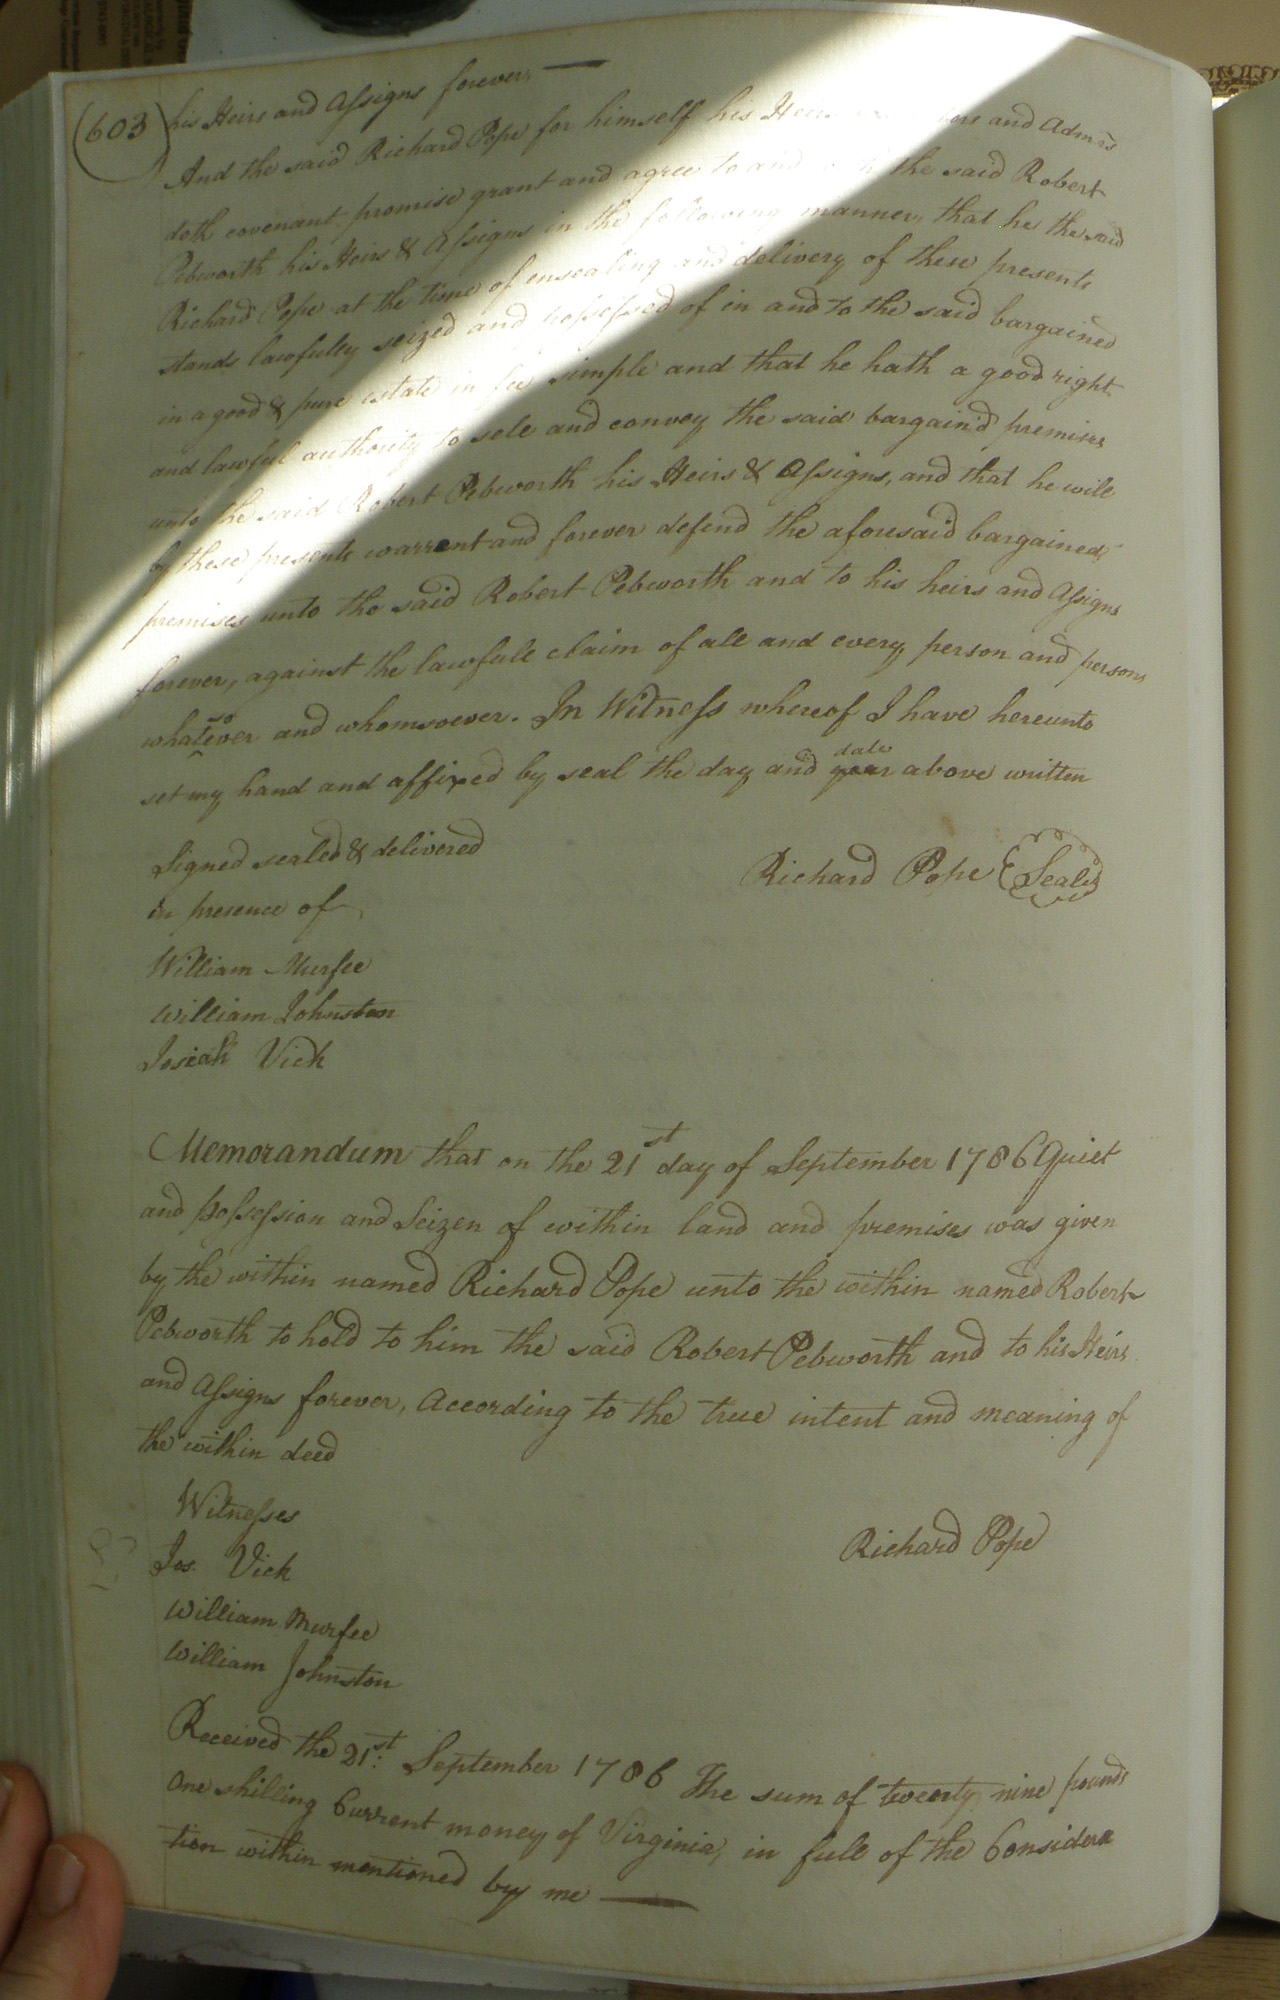 (603)
his Heirs and Assigns forever,
And the said Richard Pope for himself his Heirs and Admrs
doth covenant, promise grant and agree to and the said Robert
Pebworth his Heirs & Assigns in the following manner, that he the said
Richard Pope at the time of ensealing and delivery of these presents
stands lawfully seized and possessed of in and to the said bargained
in a good & pure estate in fee simple and that he hath a good right
and lawful authority to sole and convey the said bargain'd premises
unto the said Robert Pebworth his Heirs & Assigns, and that he will
by these presents warrent and forever defend the aforesaid bargained
premises unto the said Robert Pebworth and to his heirs and Assigns
forever, against the lawfull claim of all and every person and persons
whatsoever and whomsoever. In Witness whereof I have hereunto
set my hand and affixed by seal the day and date above written
Signed sealed & delivered
in presence of
Richard Pope Seal
William Murfee
William Johnston
Josiah Vick
Memorandum that on the 21st day of September 1786 Quiet
and possession and Seizen of within land and premises was given
by the within named Richard Pope unto the within named Robert
Pebworth to hold to him the said Robert Pebworth and to his Heirs
and Assigns forever, According to the true intent and meaning of
the within deed
Witnesses
Richard Pope
Jos. Vick
William Murfee
William Johnston
Received the 21st: September 1786 The sum of twenty nine pounds
One shilling Current money of Virginia, in full of the Considera
tion within mentioned by me